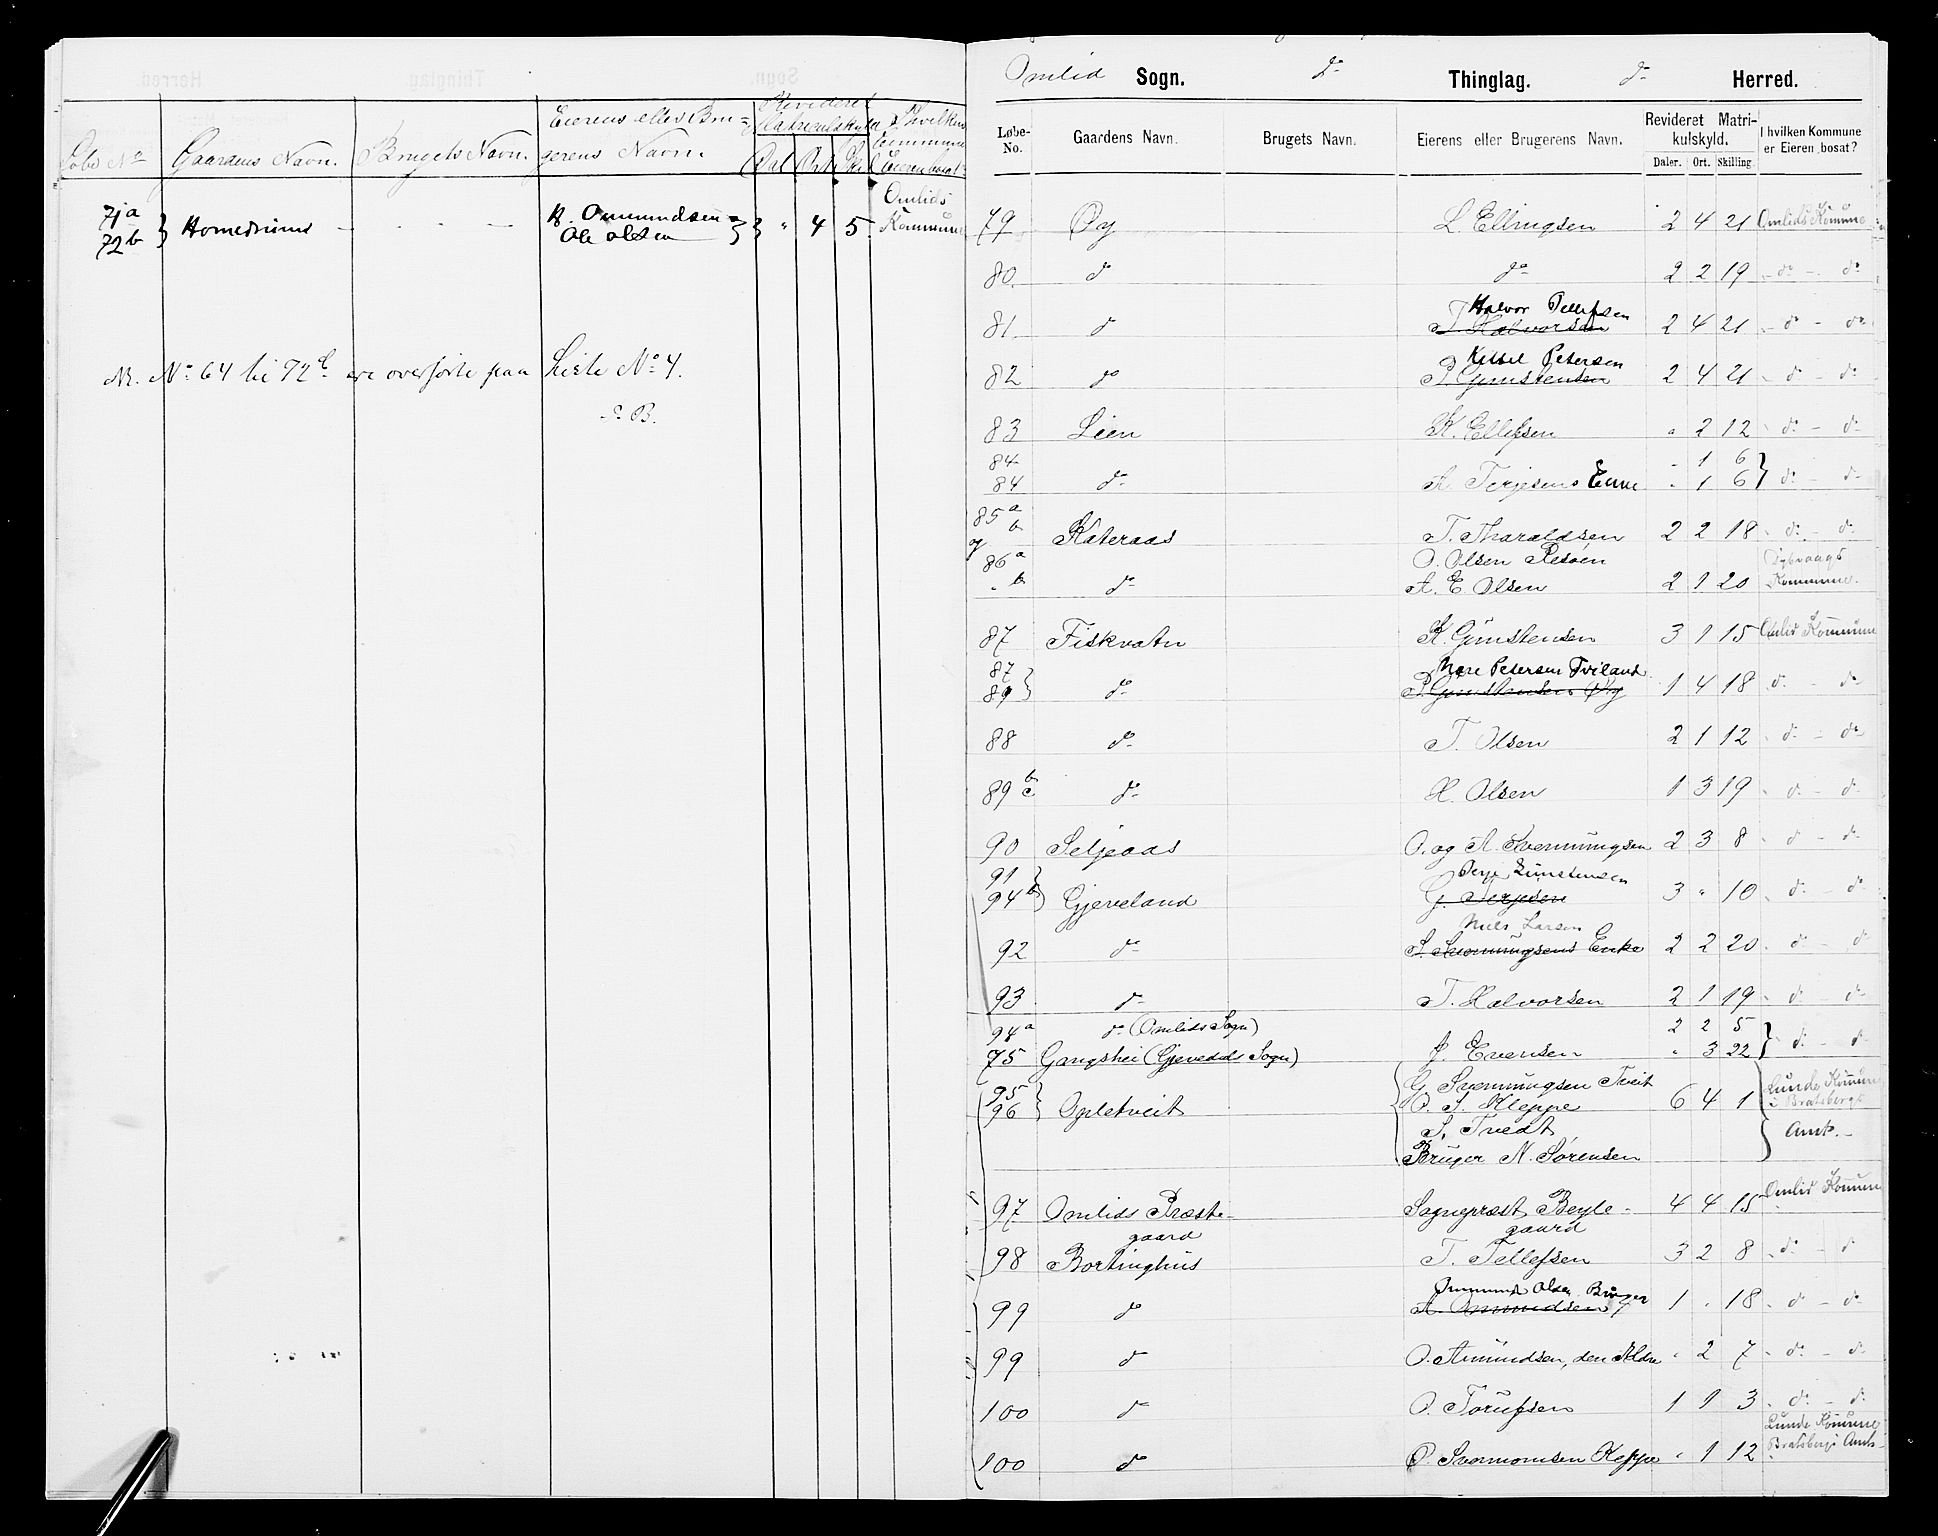 Løbe No Gaardens Navn. Brugets Navn. Eierens eller Bru=
gerens Navn. Revideret
Matriculskyld
Dal Ort Skil I hvilken
Commune
er Eieren bosat
71a
72b } Homedrums - - - - K. Ommundsen
Ole Olsen } " 4 5 Omlids
Kommune
NB. No 64 til 72b ere overførte paa Liste No 4.
D. B.
Omlid Sogn. do Thinglag. do Herred.
Løbe-
No. Gaardens Navn. Brugets Navn. Eierens eller Brugerens Navn. Revideret Matri-
kulskyld.
Daler. Ort. Skilling. I hvilken Kommune
er Eieren bosat?
79 Øy L. Ellingsen 2 4 21 Omlids Komune
80 do do 2 2 19 - do - do
Halvor Tellefsen
81 do T. Halvorsen 2 4 21 - do - do
Kittil Petersen
82 do P. Gunstensen 2 4 21 - do - do
83 Lien K. Ellefsen " 2 12 - do - do
84 " 1 6
84 do A. Terjesens Enke " 1 6 } do - do
85 a
b Kateraas T. Tharaldsen 2 2 18 - do - do
og
86 a O. Olsen Resøen Dybvaags
" b do A. E. Olsen 2 1 20 Kommune.
87 Fiskvatn K. Gunstensen 3 1 15 Omlid Kommune
87 Nere Petersen Tviland
89 } do P. Gunstensen Øy 1 4 18 do - do
88 do T. Olsen 2 1 12 - do - do
89 b
c do H. Olsen 1 3 19 - do - do
90 Seljeaas O. og A. Svennungsen 2 3 8 - do - do
91 Terje Gunstensen
94 b } Gjeveland G. Terjesen 3 " 10 - do - do
Niels Larsen
92 do S. Svennungsens Enke 2 2 20 - do - do
93 do T. Halvorsen 2 1 19 - do - do
94 a do (Omlids Sogn) 2 2 5
75 Gangshei (Gjevedals Sogn) J. Evensen " 3 22 } do - do
95
96 } Opletveit G. Svennungsen Tveit
O. S. Kleppe 6 4 1 Lunde Komune
i Bratsbergs
S. Tvedt Amt.-
Bruger N. Sørensen
97 Omlids Præste-
gaard Sognepræst Beyle-
gaard 4 4 15 Omlid Komune
98 Bortinghus T. Tellefsen 3 2 8 - do - do
Ommund Olsen Bruger
99 do A. Ommundsen 1 " 18 - do - do
99 do O. Amundsen, den Ældre " 2 7 - do - do
100 do O. Torufsen 1 1 3 - do - do
100 do O. Svenomsen Keppe " 1 12 Lunde Komune
Bratsbergs Amt-